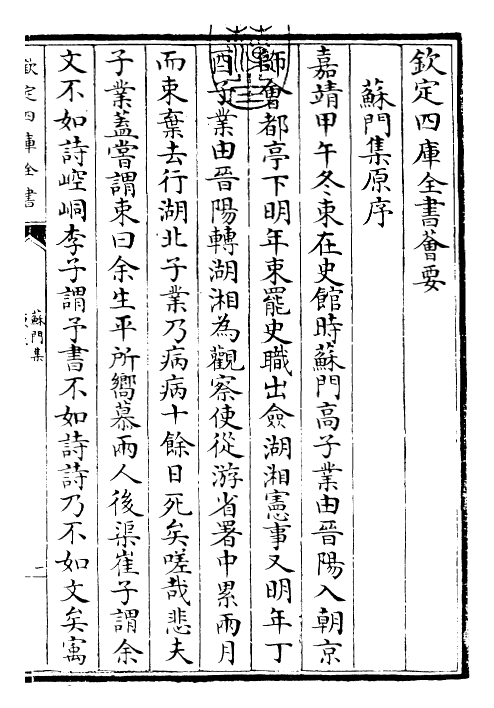 欽定四庫全書薈要
蘇門集原序
嘉靖甲午冬束在史館時蘇門高子業由晉陽入朝京
師會都亭下明年束罷史職出僉湖湘憲事又明年丁
酉子業由晉陽轉湖湘為觀察使從游省署中累兩月
而束棄去行湖北子業乃病病十餘日死矣嗟哉悲夫
子業蓋嘗謂束曰余生平所嚮慕兩人後渠崔子謂余
文不如詩崆峒李子謂予書不如詩詩乃不如文矣寓
欽定四庫全書
蘇門集